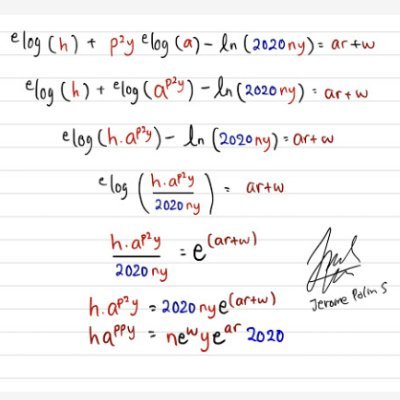 ᵉlog(h) + p²y ᵉlog(a) - ln(2020ny) = ar+w
ᵉlog(h) + ᵉlog(a^(p²y)) - ln(2020ny) = ar+w
ᵉlog(h.a^(p²y)) - ln(2020ny) = ar+w
ᵉlog(h.a^(p²y) / 2020ny) = ar+w
h.a^(p²y) / 2020ny = e^(ar+w)
h.a^(p²y) = 2020nye^(ar+w)
ha^(ppy) = ne^(w)ye^(ar) 2020
Jerome Polin S